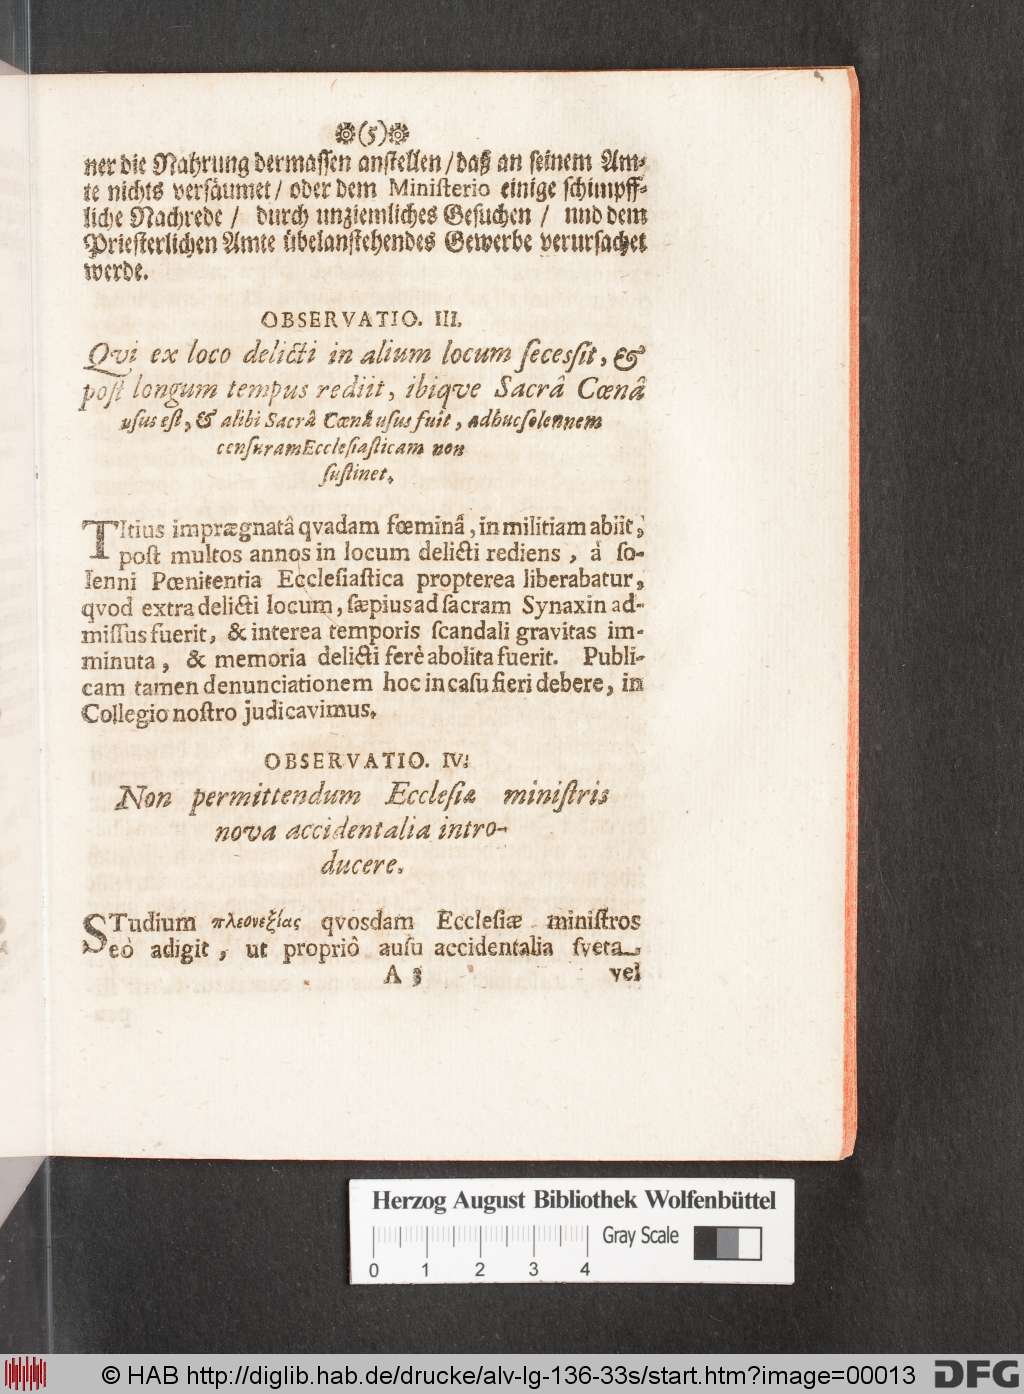 ❁(5)❁
ner die Nahrung dermassen anstellen/ daß an seinem Am-
te nichts versäumet/ oder dem Ministerio einige schimpff-
liche Nachrede/ durch unziemliches Gesuchen/ und dem
Priesterlichen Amte übelanstehendes Gewerbe verursachet
werde.
OBSERVATIO. III.
Qvi ex loco delicti in alium locum secessit, &
post longum tempus rediit, ibiqve Sacrâ Cœnâ
usus est, & alibi Sacrâ Cœnâ usus fuit, adhuc solennem
censuram Ecclesiasticam non
sustinet.
TItius imprægnatâ qvadam fœminâ, in militiam abiit,
post multos annos in locum delicti rediens, à so-
lenni Pœnitentia Ecclesiastica propterea liberabatur,
qvod extra delicti locum, sæpius ad sacram Synaxin ad-
missus fuerit, & interea temporis scandali gravitas im-
minuta, & memoria delicti ferè abolita fuerit. Publi-
cam tamen denunciationem hoc in casu fieri debere, in
Collegio nostro judicavimus.
OBSERVATIO. IV.
Non permittendum Ecclesiæ ministris
nova accidentalia intro-
ducere.
STudium πλεονεξίας qvosdam Ecclesiæ ministros
eò adigit, ut propriô ausu accidentalia sveta
A 3 vel
Herzog August Bibliothek Wolfenbüttel
Gray Scale
0 1 2 3 4
© HAB http://diglib.hab.de/drucke/alv-lg-136-33s/start.htm?image=00013
DFG